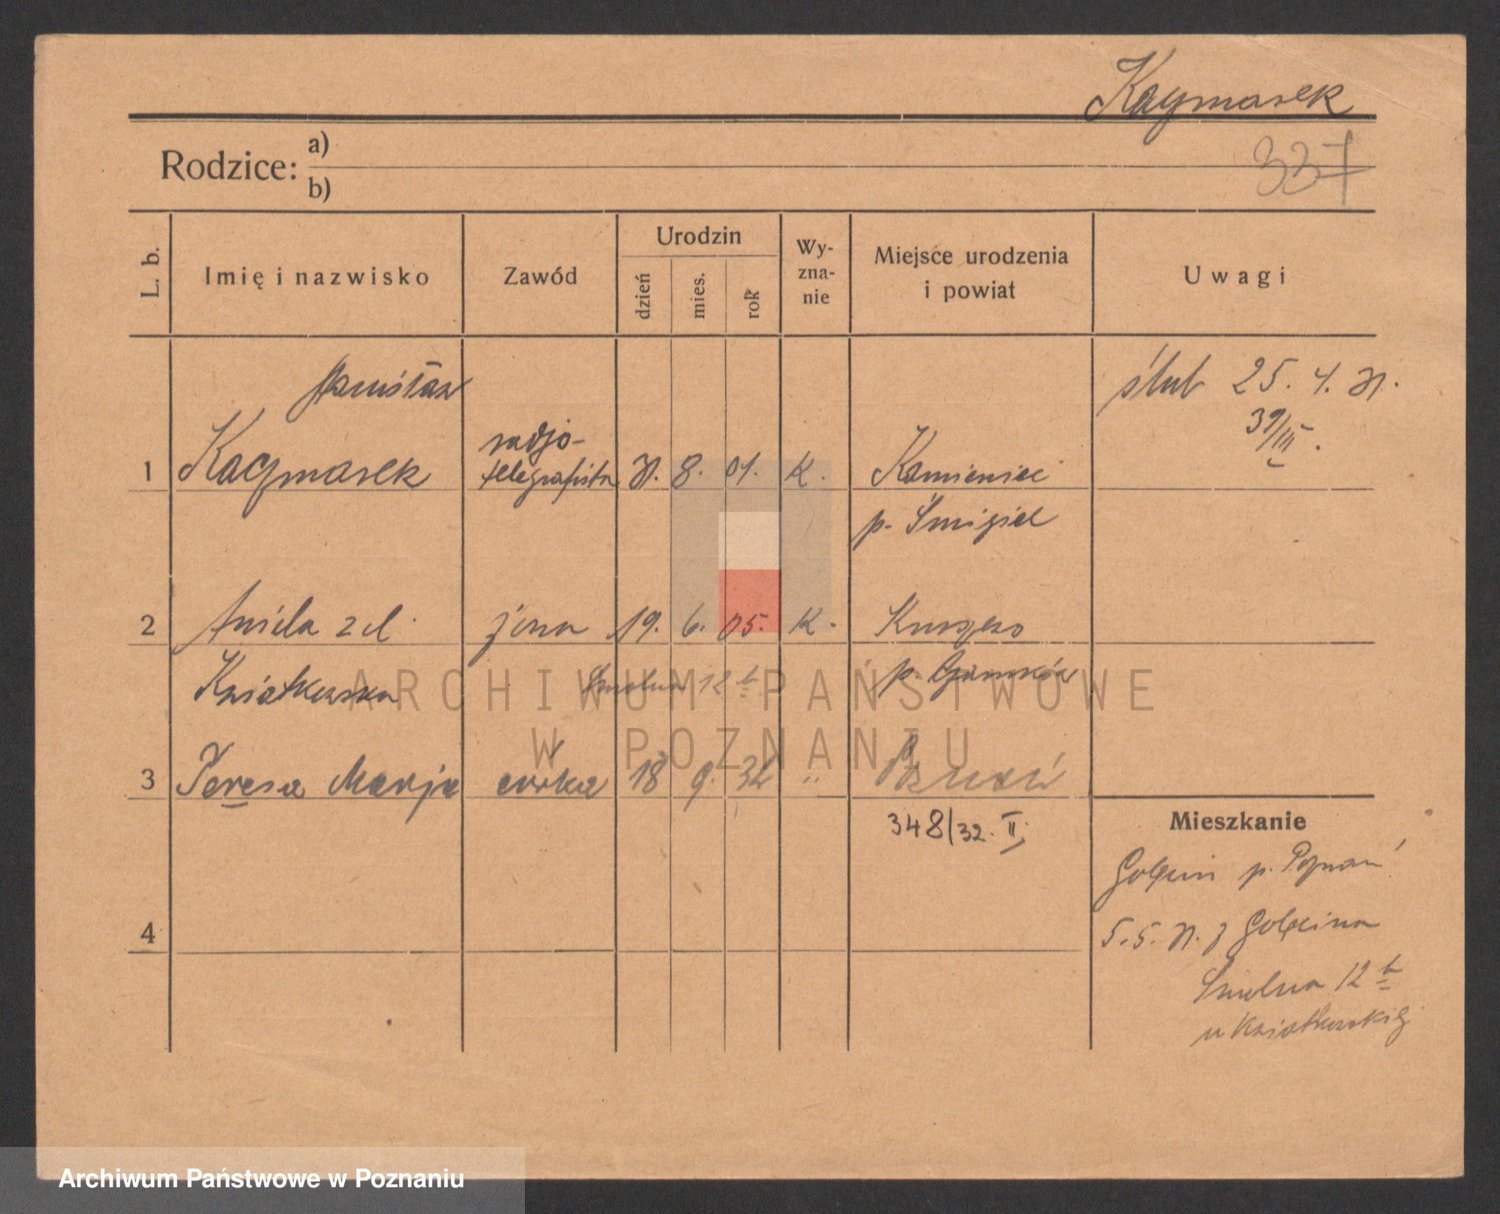 Kaczmarek
337
Rodzice: a)
b)
L. b.
Imię i nazwisko
Zawód
Urodzin
dzień
mies.
rok
Wy-
zna-
nie
Miejsce urodzenia
i powiat
Uwagi
Stanisław
ślub 25. 4. 31.
39/III.
1 Kaczmarek
radjo-
telegrafista
31. 8. 01. K.
Kamieniec
p. Śmigiel
2 Aniela z d.
Kwiatkowska
żona 19. 6. 05. K.
Smolna 12 b
ARCHIWUM PAŃSTWOWE
W POZNANIU
3 Teresa Marja córka 18 9. 32 " Poznań
348/32. II
Mieszkanie
Golęcin p. Poznań
5. 5. 31. z Golęcina
Smolna 12 b
u Kwiatkowskiej
4
Archiwum Państwowe w Poznaniu